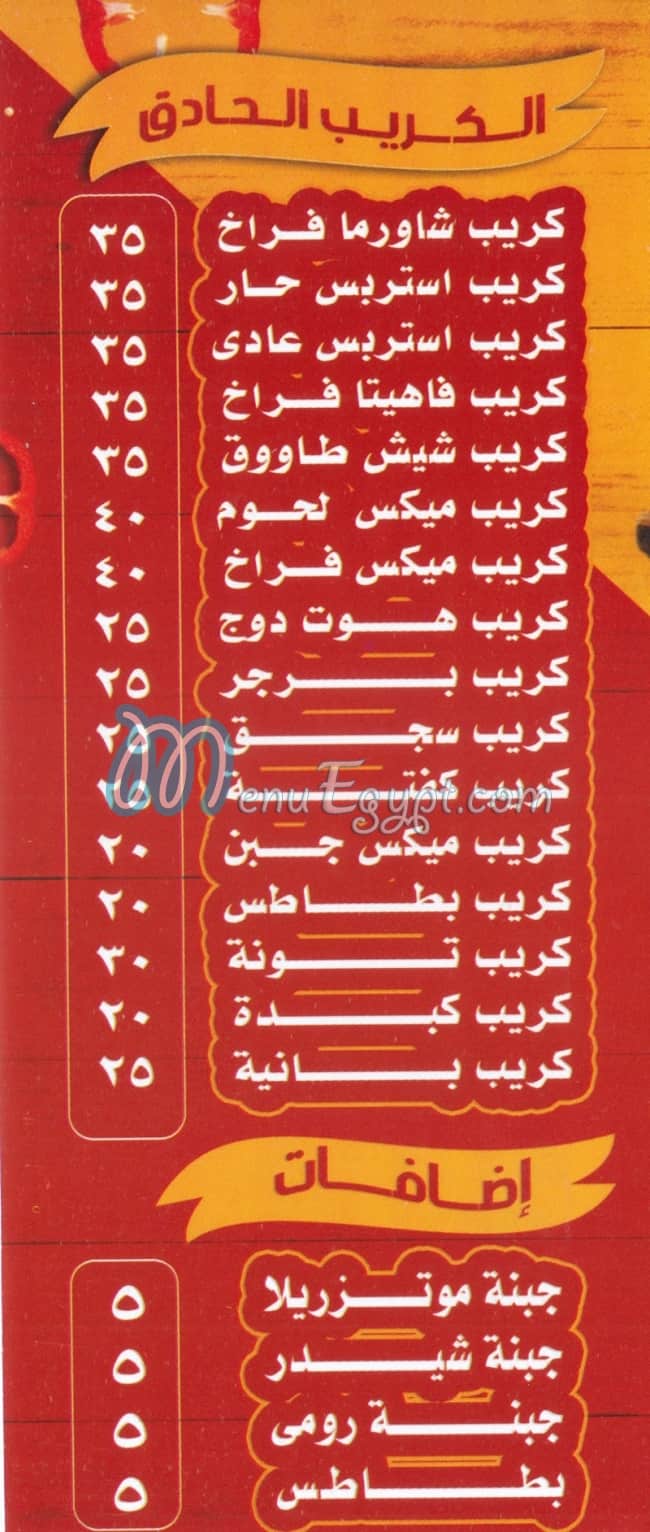 الكريب الحادق
كريب شاورما فراخ ٣٥
كريب استربس حار ٣٥
كريب استربس عادى ٣٥
كريب فاهيتا فراخ ٣٥
كريب شيش طاووق ٣٥
كريب ميكس لحوم ٤٠
كريب ميكس فراخ ٤٠
كريب هوت دوج ٢٥
كريب برجر ٢٥
كريب سجق ٢٥
كريب كفتة ٢٥
MenuEgypt.com
كريب ميكس جبن ٢٠
كريب بطاطس ٢٠
كريب تونة ٣٠
كريب كبدة ٢٠
كريب بانية ٢٥
إضافات
جبنة موتزريلا ٥
جبنة شيدر ٥
جبنة رومى ٥
بطاطس ٥